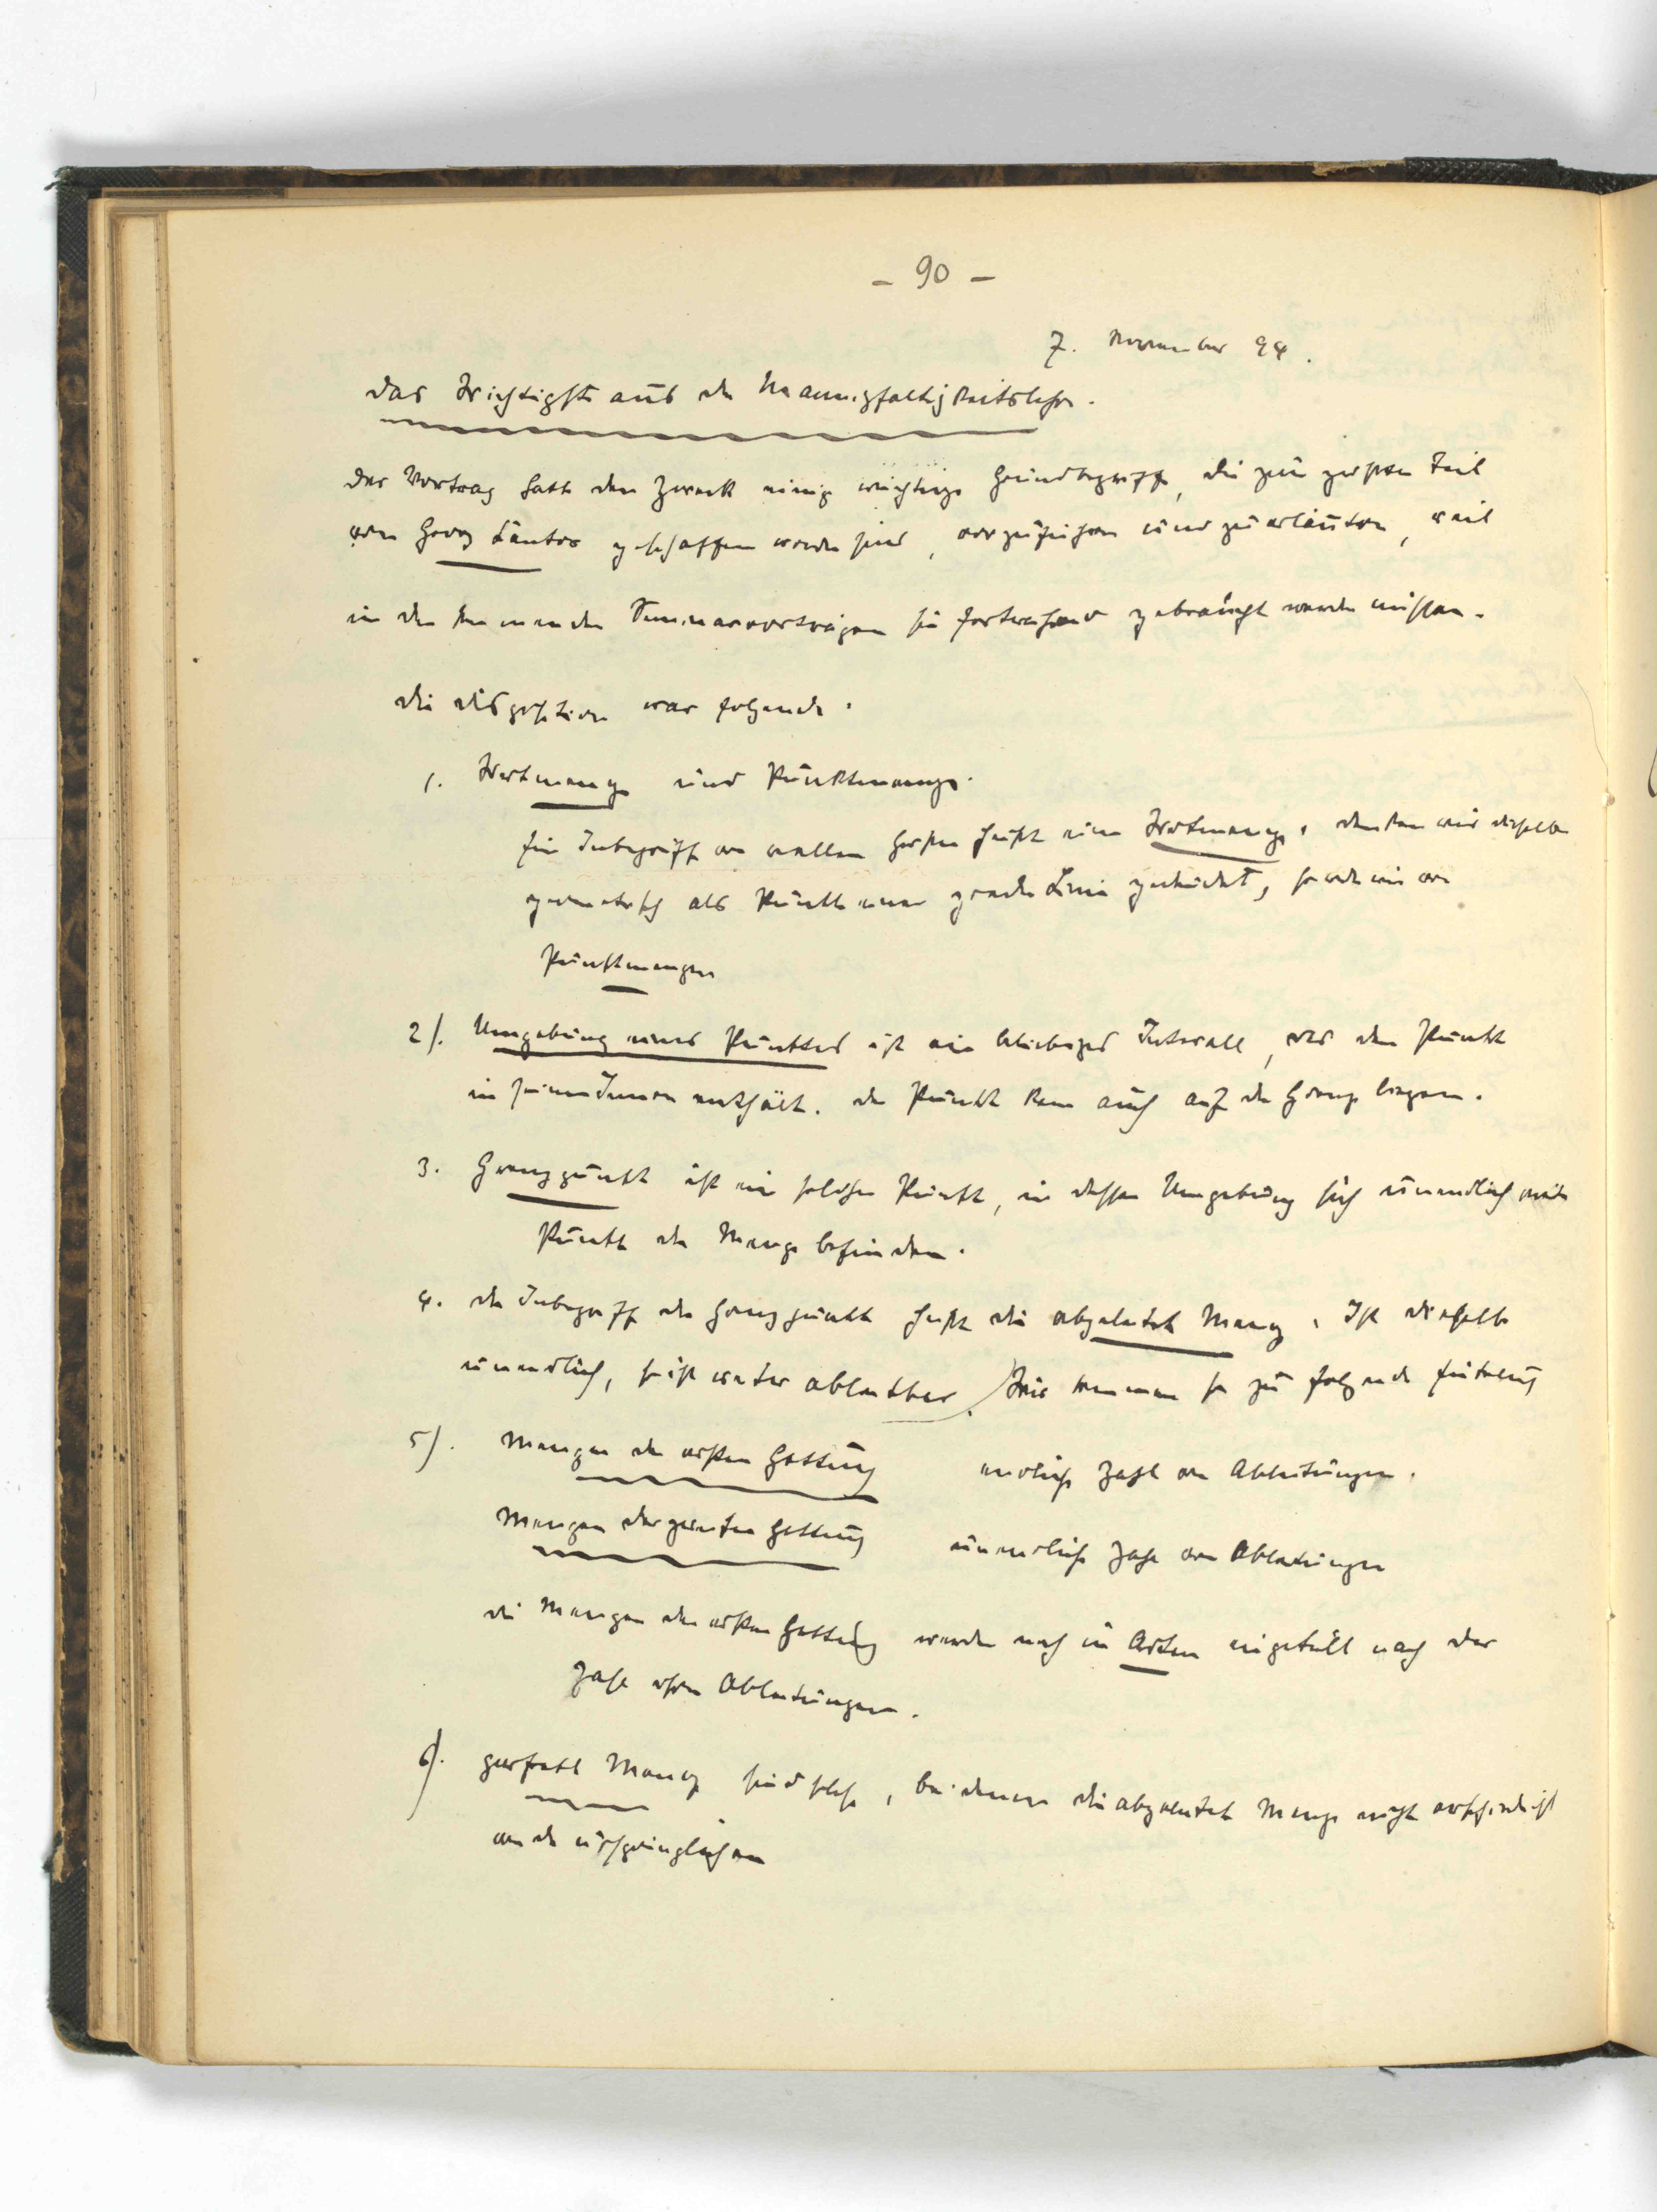 – 90 –
7. November 94.
Das Wichtigste aus der Mannigfaltigkeitslehre.
Der Vortrag hatte den Zweck einige wichtige Grundbegriffe, die zum grossen Teil
von Georg Cantor geschaffen worden sind, vorzuführen und zu erläutern, weil
in den kommenden Seminarvorträgen sie fortwährend gebraucht werden müssen.
Die Disposition war folgende.
1. Wertmenge und Punktmenge.
Ein Inbegriff von reellen Grössen heisst eine Wertmenge. Denken wir dieselben
geometrisch als Punkte einer geraden Linie gedeutet, so reden wir von
Punktmengen
2). Umgebung eines Punktes ist ein beliebiges Intervall, das den Punkt
in seinem Innern enthält. Der Punkt kann auch auf der Grenze liegen.
3. Grenzpunkt ist ein solcher Punkt, in dessen Umgebung sich unendlich viele
Punkte der Menge befinden.
4. Der Inbegriff der Grenzpunkte heisst die abgeleitete Menge. Ist dieselbe
unendlich, so ist weiter ableitbar. Wir kommen so zu folgender Einteilung
5). Mengen der ersten Gattung endliche Zahl von Ableitungen.
Mengen der zweiten Gattung unendliche Zahl von Ableitungen
Die Mengen der ersten Gattung werden noch in Arten eingeteilt nach der
Zahl ihrer Ableitungen.
6). perfekte Menge sind solche, bei denen die abgeleitete Menge nicht verschieden ist
von der ursprünglichen